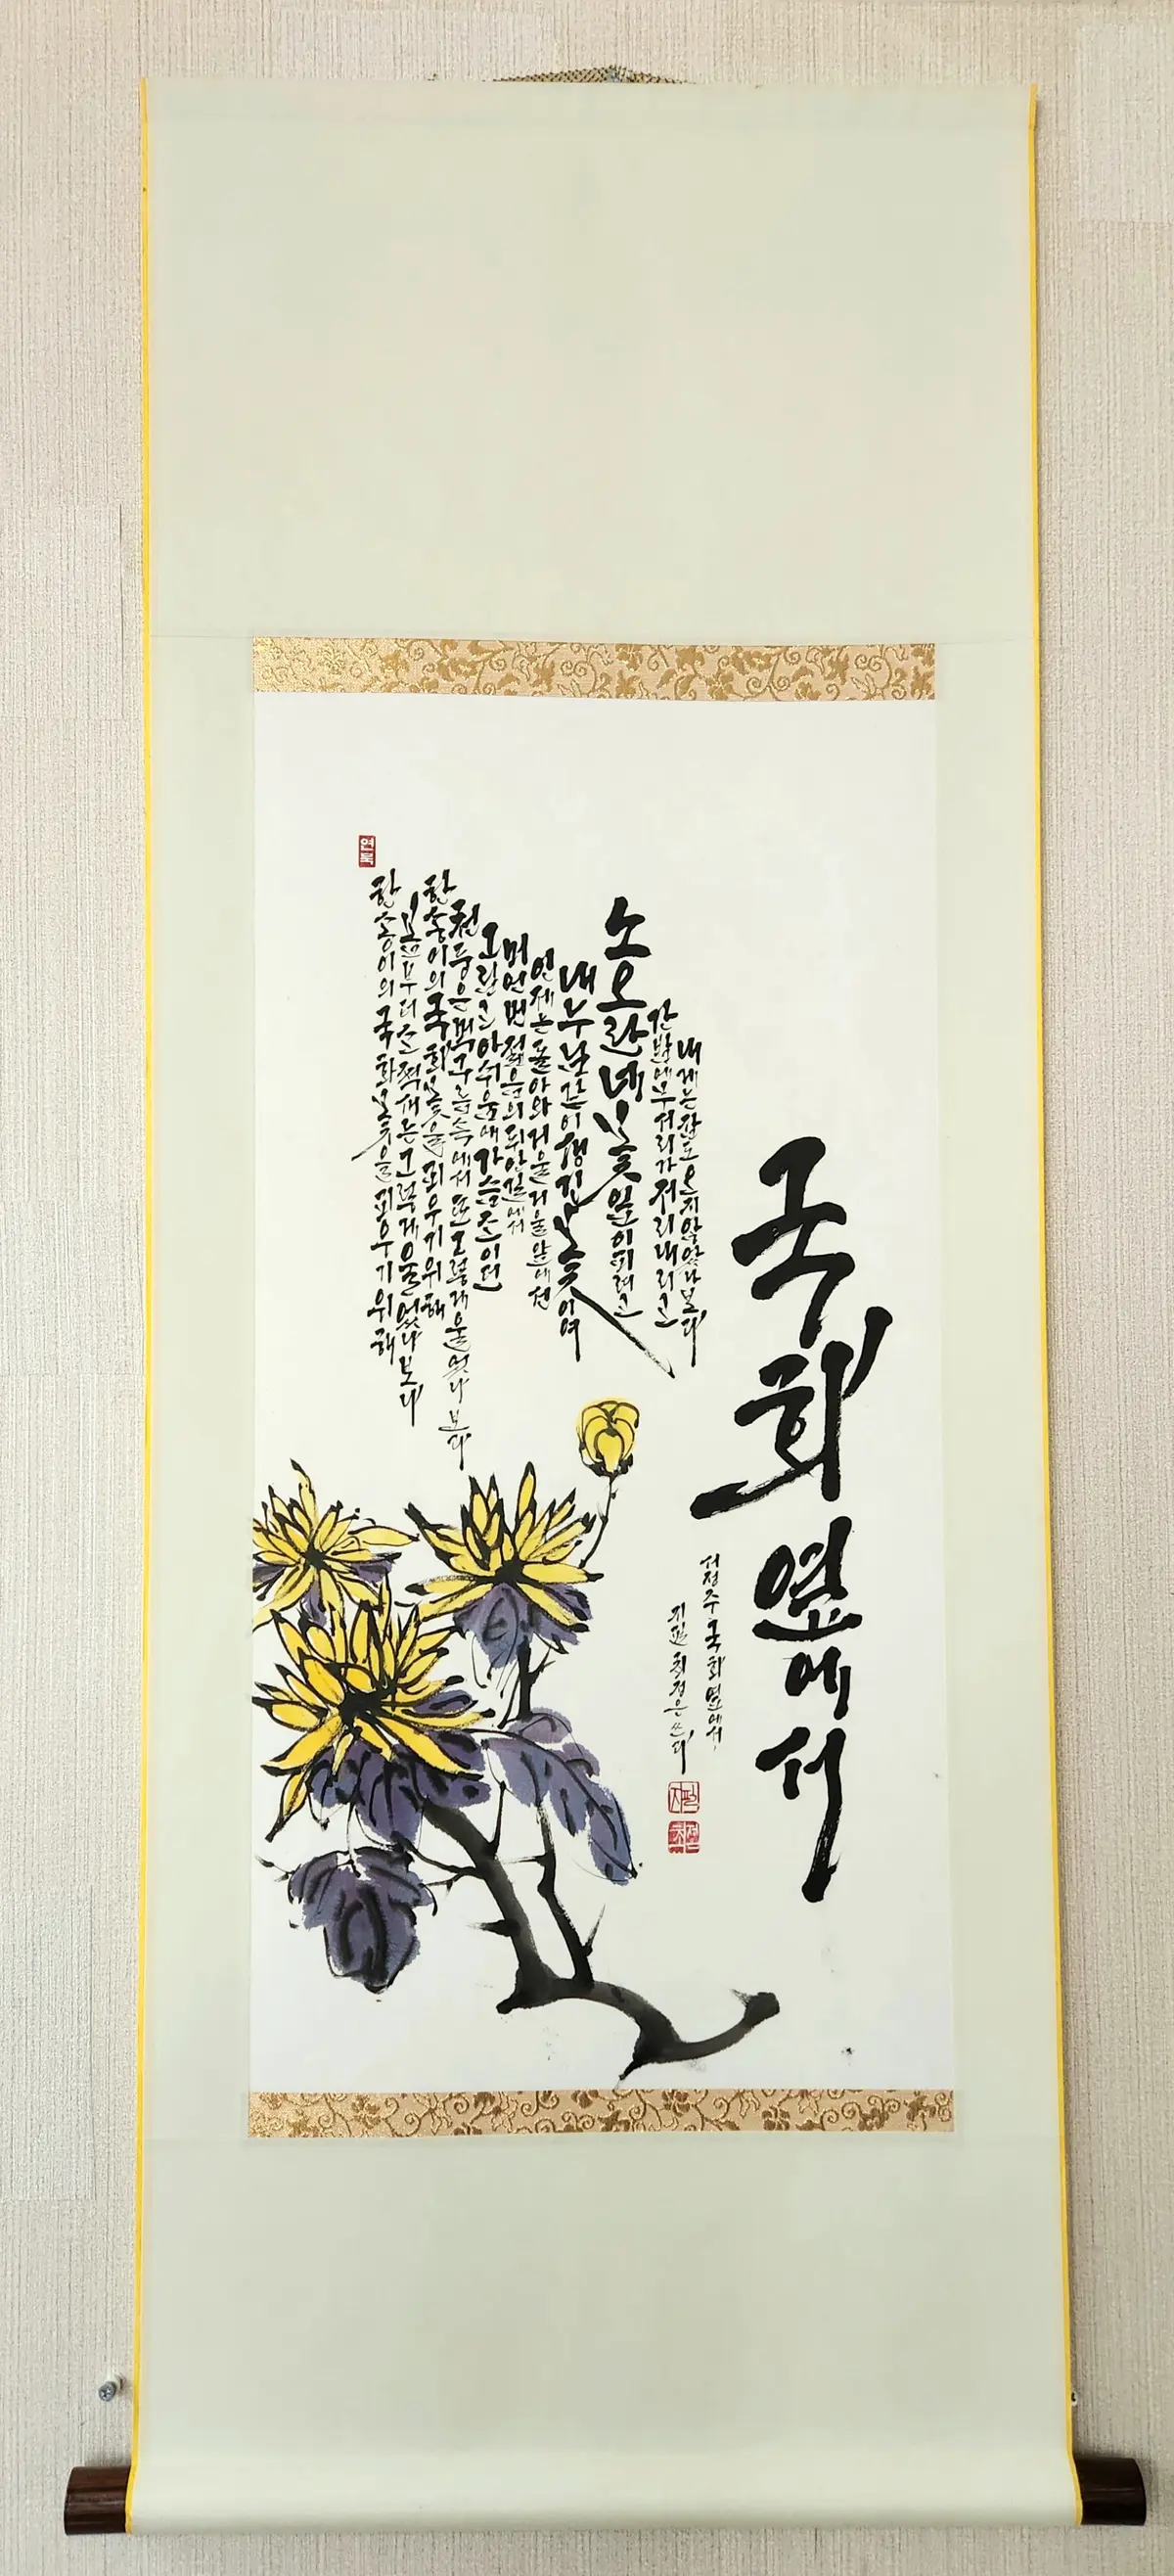 국화 옆에서
한송이의 국화꽃을 피우기 위해
봄부터 소쩍새는 그렇게 울었나보다
한송이의 국화꽃을 피우기 위해
천둥은 먹구름속에서 또 그렇게 울었나보다
그립고 아쉬움에 가슴조이던
머언먼 젊음의 뒤안길에서
인제는 돌아와 거울 거울앞에선
내 누님같이 생긴 꽃이여
노오란 네 꽃잎이 피려고
간밤에 무서리가 저리 내리고
내게는 잠도 오지 않았나보다
서정주 국화 옆에서,
지필 최정은 쓰다